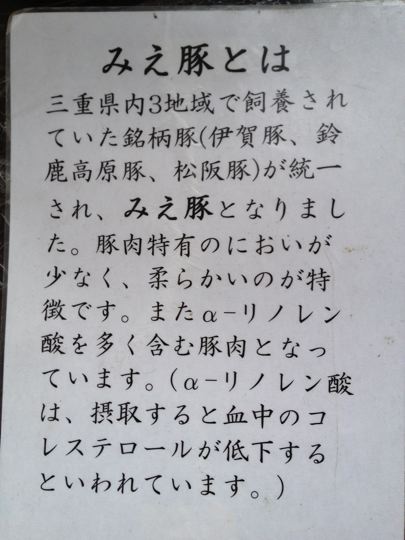 みえ豚とは
三重県内3地域で飼養され
ていた銘柄豚(伊賀豚、鈴
鹿高原豚、松阪豚)が統一
され、みえ豚となりまし
た。豚肉特有のにおいが
少なく、柔らかいのが特
徴です。またα-リノレン
酸を多く含む豚肉となっ
ています。(α-リノレン酸
は、摂取すると血中のコ
レステロールが低下する
といわれています。)